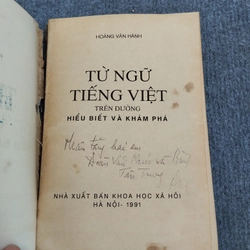 HOÀNG VĂN HÀNH
TỪ NGỮ
TIẾNG VIỆT
TRÊN ĐƯỜNG
HIỂU BIẾT VÀ KHÁM PHÁ
Thân tặng hai em
NHÀ XUẤT BẢN KHOA HỌC XÃ HỘI
HÀ NỘI - 1991